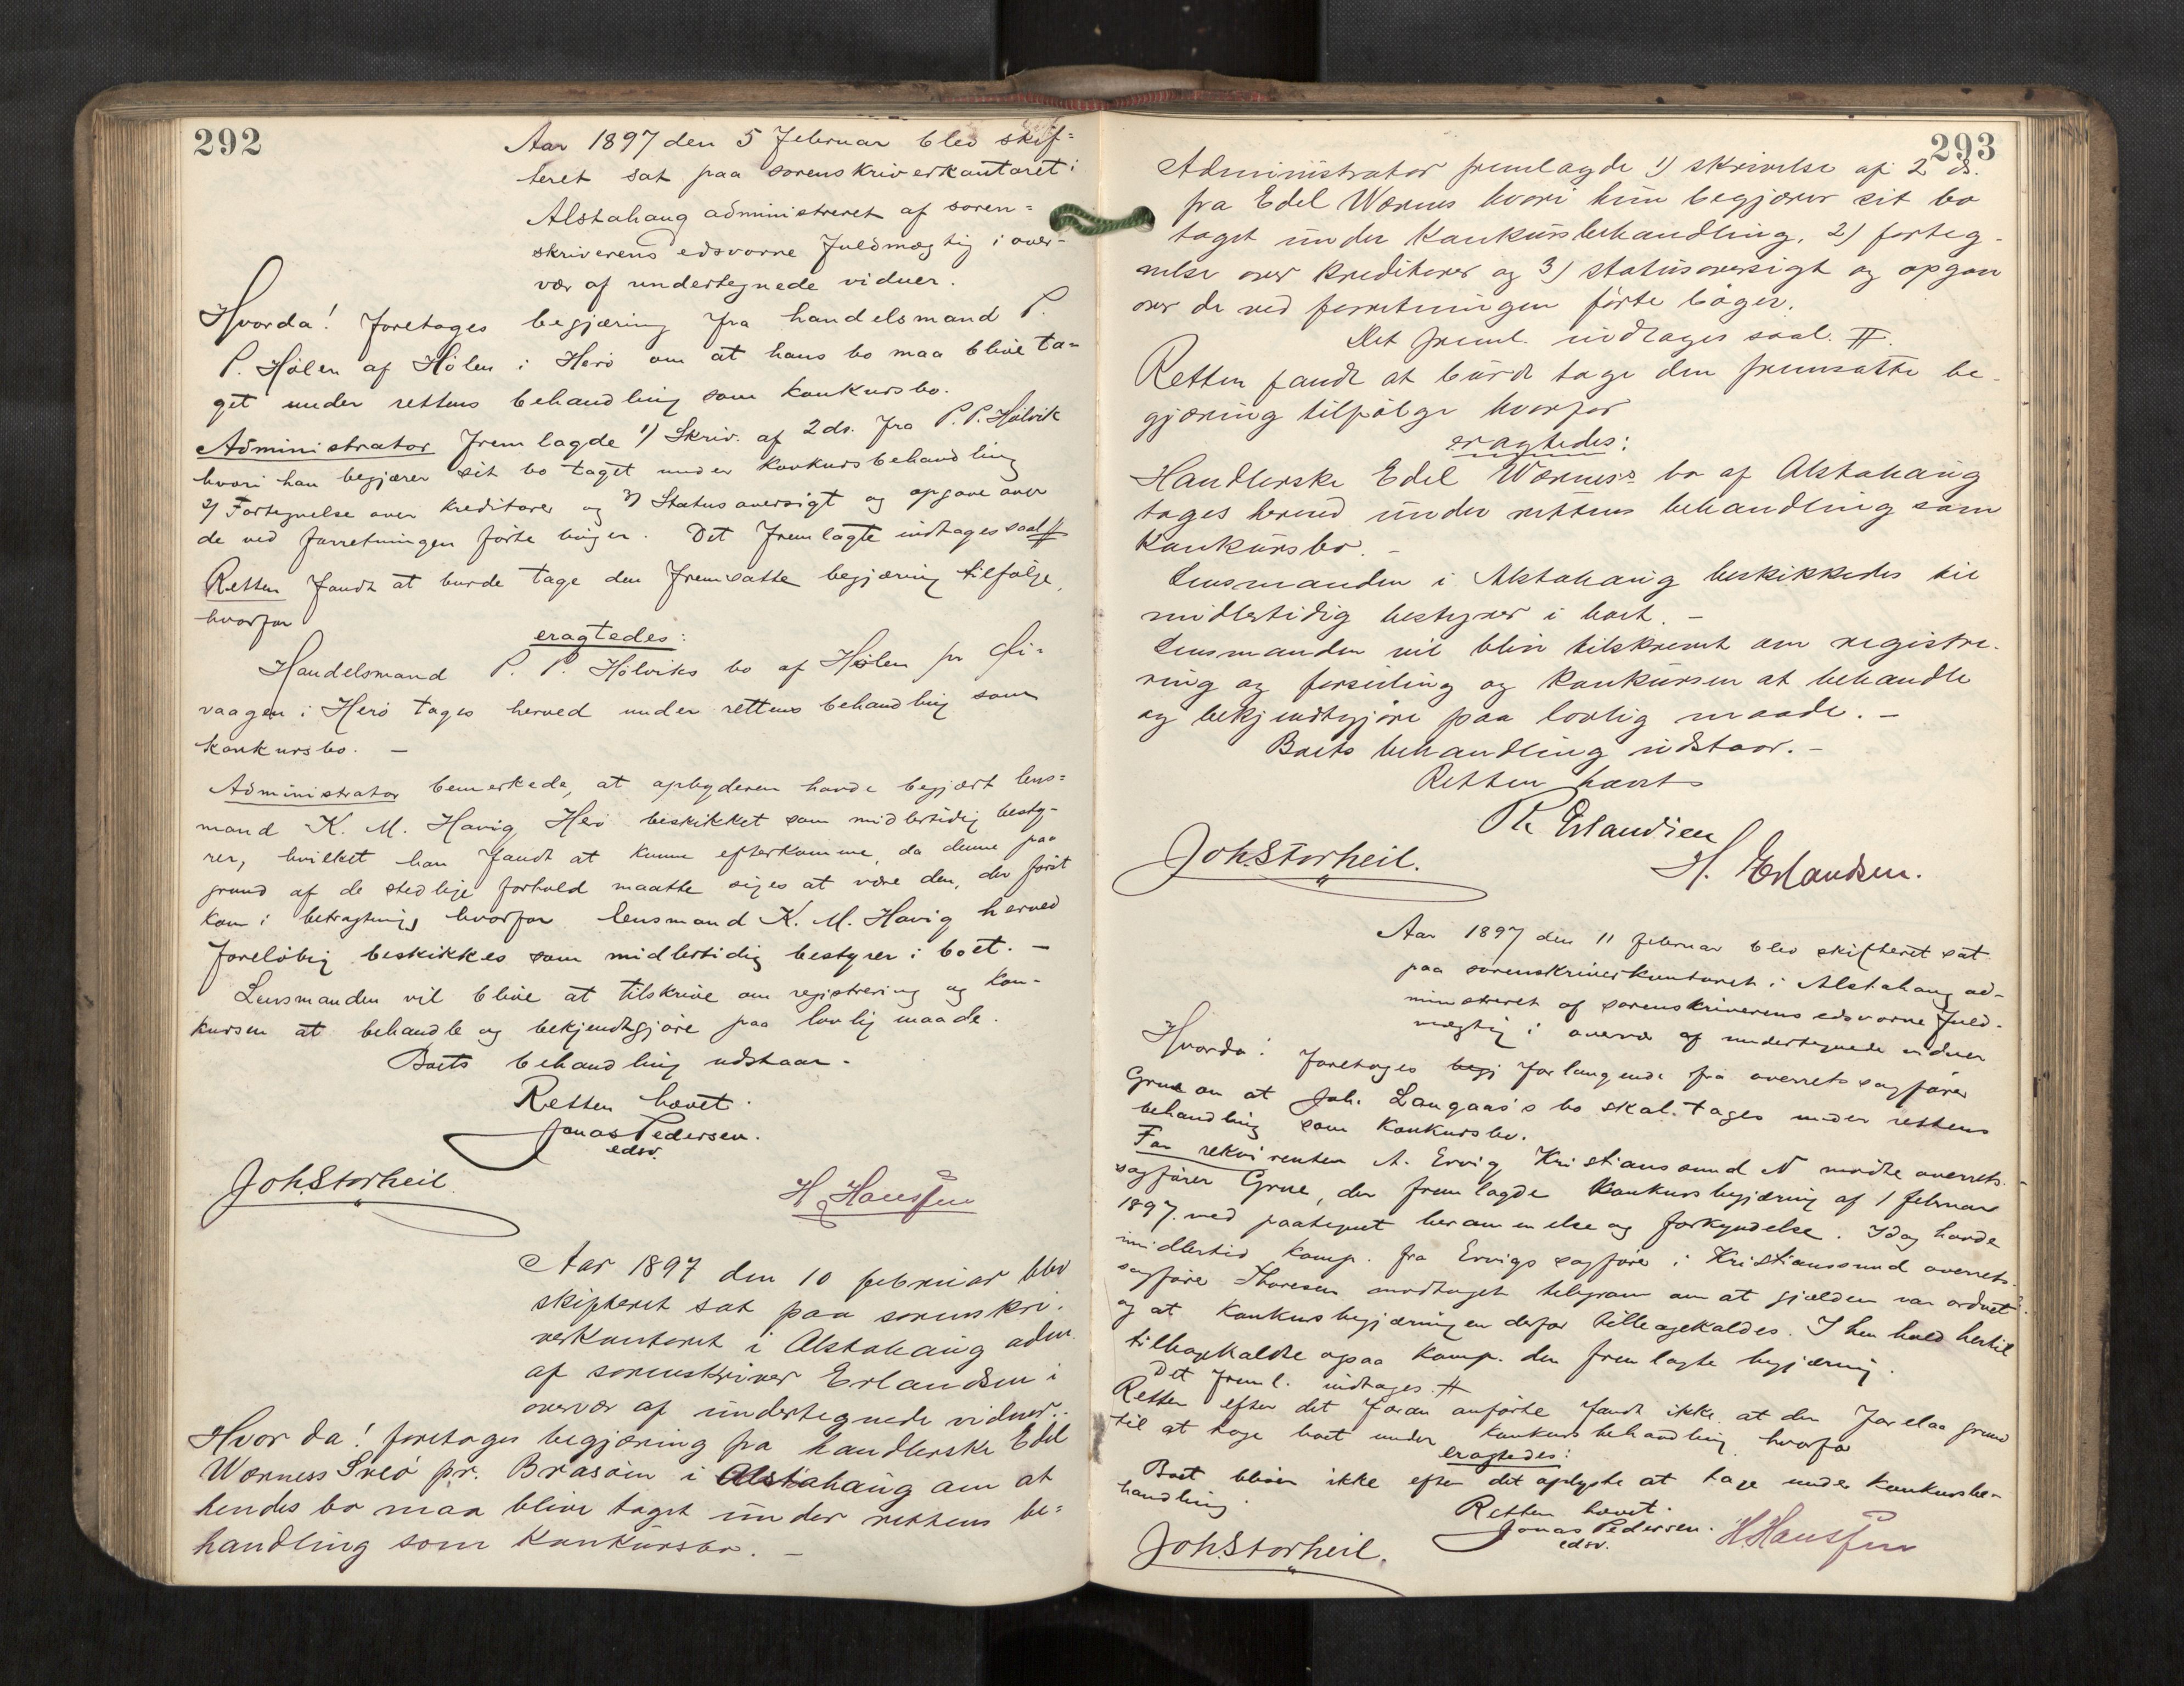 292
Aar 1897 den 5 Februar blev skif=
teret sat paa sorenskriverkontoret i
Alstahaug administreret af soren=
skriverens edsvorne Fuldmægtig i over-
vær af undertegnede vidner.
Hvorda! foretoges begjæring fra handelsmand P.
P. Hölen af Hölen i Herö om at hans bo maa blive ta-
get under rettens behandling som konkursbo.
Administrator fremlagde 1) Skriv. af 2 ds. fra P. P. Hölvik
hvori han begjærer sit bo taget under konkursbehandling
2) Fortegnelse over kreditorer og 3) Statusoversigt og opgave over
de ved forretningen förte böger. Det fremlagte indtages saal #
Retten fandt at burde tage den fremsatte begjæring tilfölge,
hvorfor
eragtedes:
Handelsmand P. P. Hölviks bo af Hölen pr
vaagen i Herö tages herved under rettens behandling som
konkursbo. —
Administrator bemerkede, at opbyderen havde begjært lens=
mand K. M. Havig, Herö beskikket som midlertidig besty-
rer, hvilket han fandt at kunne efterkomme, da denne paa
grund af de stedlige forhold maatte siges at være den, der först
kom i betragtning hvorfor lensmand K. M. Havig herved
forelöbig beskikkes som midlertidig bestyrer i boet. —
Lensmanden vil blive at tilskrive om registrering og kon-
kursen at behandle og bekjendtgjöre paa lovlig maade.
Boets behandling udstaar.
Retten hævet.
Jonas Pedersen.
edsv.
Joh. Storheil
H Hanssen
Aar 1897 den 10 februar blev
skifteret sat paa sorenskri-
verkontoret i Alstahaug adm.
af sorenskriver Erlandsen i
overvær af undertegnede vidner.
Hvor da! foretoges begjæring fra handlerske Edel
Wærness pr. Brasöen i Alstahaug om at
hendes bo maa blive taget under rettens be=
handling som Konkursbo. —
293
Administrator fremlagde 1) skrivelse af 2 ds.
fra Edel Wærnes hvori hun begjærer sit bo
taget under Konkursbehandling, 2) forteg-
nelse over Kreditorer og 3) statusoversigt og opgave
over de ved forretningen förte böger.
Det freml. indtages saal. #.
Retten fandt at burde tage den fremsatte be-
gjæring tilfölge hvorfor
eragtedes:
Handlerske Edel Wærnes's bo af Alstahaug
tages herved under rettens behandling som
Konkursbo. —
Lensmanden i Alstahaug beskikkedes til
midlertidig bestyrer i boet. —
Lensmanden vil blive tilskrevet om registre-
ring og forseiling og Konkursen at behandle
og bekjendtgjöre paa lovlig maade. —
Boets behandling udstaar. —
Retten hævet
Erlandsen
Joh. Storheil.
H. Erlandsen.
Aar 1897 den 11 februar blev skifteret sat
paa sorenskriverkontoret i Alstahaug ad-
ministreret af sorenskriverens edsvorne fuld-
mægtig i overvær af undertegnede vidner
Hvorda! foretoges begj forlangende fra overretssagförer
Grue om at Joh. Langaas's bo skal tages under rettens
behandling som Konkursbo.
For rekvirenten A. Ervig Kristianssund N mödte overrets-
sagförer Grue, der fremlagde Konkursbegjæring af 1 februar
1897 med paategnet berammelse og forkyndelse. Idag havde
imidlertid komp. fra Ervigs sagförer i Kristianssund overrets-
sagförer Thoresen modtaget telegram om at gjælden var ordnet
og at Konkursbegjæringen derfor tilbagekaldes. I henhold hertil
tilbagekaldte ogsaa Komp. den fremlagte begjæring.
Det freml. indtages #
Retten efter det foran anförte fandt ikke at der forelaa grund
til at tage boet under Konkursbehandling hvorfor
eragtedes:
Boet bliver ikke efter det oplyste at tage under Konkursbe-
handling.
Retten hævet.
Jonas Pedersen.
edsv.
Joh. Storheil.
H. Hanssen